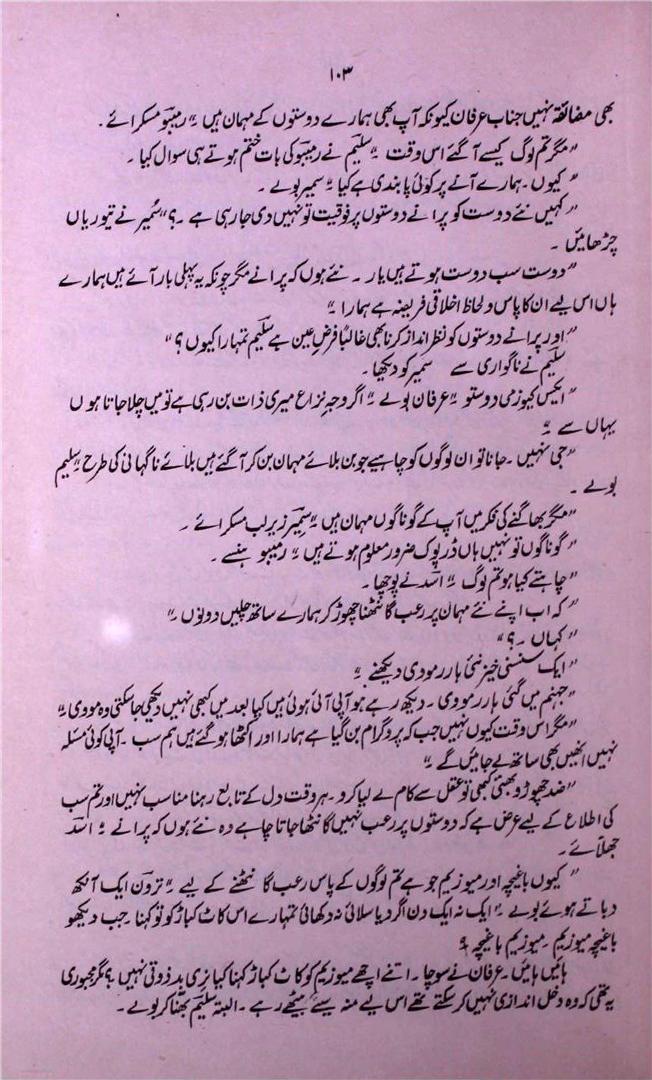 ۱۰۳
بھی مضائقہ نہیں جناب عرفان کیونکہ آپ بھی ہمارے دوستوں کے مہمان ہیں۔“ رمیبو مسکرائے۔
”مگر تم لوگ کیسے آگئے اس وقت۔“ سلیم نے رمیبو کی بات ختم ہوتے ہی سوال کیا۔
”کیوں۔ ہمارے آنے پر کوئی پابندی ہے کیا۔“ سمیر بولے۔
”کہیں نئے دوست کو پرانے دوستوں پر فوقیت تو نہیں دی جا رہی ہے۔؟“ سمیر نے تیوریاں
چڑھائیں۔
”دوست سب دوست ہوتے ہیں یار۔ نئے ہوں کہ پرانے مگر چونکہ یہ پہلی بار آئے ہیں ہمارے
ہاں اس لیے ان کا پاس و لحاظ اخلاقی فریضہ ہے ہمارا۔“
”اور پرانے دوستوں کو نظر انداز کرنا بھی غالباً فرضِ عین ہے سلیم تمہارا کیوں؟“
سلیم نے ناگواری سے سمیر کو دیکھا۔
”ایکس کیوزمی دوستو۔“ عرفان بولے۔“ اگر وجہِ نزاع میری ذات بن رہی ہے تو میں چلا جاتا ہوں
یہاں سے۔“
”جی نہیں۔ جانا تو ان لوگوں کو چاہیے جو بن بلائے مہمان بن کر آگئے ہیں بلائے ناگہانی کی طرح۔“ سلیم
بولے۔
”مگر بھاگنے کی فکر میں آپ کے گوناگوں مہمان ہیں۔“ سمیر زیرِ لب مسکرائے۔
”گوناگوں تو نہیں ہاں ڈرپوک ضرور معلوم ہوتے ہیں۔“ رمیبو ہنسے۔
”چاہتے کیا ہو تم لوگ۔“ اسد نے پوچھا۔
”کہ اب اپنے نئے مہمان پر رعب گانٹھنا چھوڑ کر ہمارے ساتھ چلیں دونوں۔“
”کہاں۔؟“
”ایک سنسنی خیز نئی ہارر مووی دیکھنے۔“
”جہنم میں گئی ہارر مووی۔ دیکھ رہے ہو آپی آئی ہوئی ہیں کیا بعد میں کبھی نہیں دیکھی جا سکتی وہ مووی۔“
”مگر اس وقت کیوں نہیں جب کہ پروگرام بن گیا ہے ہمارا اور اکٹھا ہو گئے ہیں ہم سب۔ آپی کوئی مسئلہ
نہیں انھیں بھی ساتھ لے جائیں گے۔“
”ضد چھوڑو بھئی کبھی تو عقل سے کام لے لیا کرو۔ ہر وقت دل کے تابع رہنا مناسب نہیں اور تم سب
کی اطلاع کے لیے عرض ہے کہ دوستوں پر رعب نہیں گانٹھا جاتا چاہے وہ نئے ہوں کہ پرانے۔“ اسد
جھلّائے۔
”کیوں باغیچہ اور میوزیم جو ہے تم لوگوں کے پاس رعب گانٹھنے کے لیے۔“ ترون ایک آنکھ
دباتے ہوئے بولے۔“ ایک نہ ایک دن اگر دیا سلائی نہ دکھائی تمہارے اس کاٹ کباڑ کو تو کہنا۔ جب دیکھو
باغیچہ میوزیم۔ میوزیم باغیچہ۔“
ہائیں ہائیں۔ عرفان نے سوچا۔ اتنے اچھے میوزیم کو کاٹ کباڑ کہنا کیا نری بدذوقی نہیں؟ مگر مجبوری
یہ تھی کہ وہ دخل اندازی نہیں کر سکتے تھے اس لیے منہ سیئے بیٹھے رہے۔ البتہ سلیم بھنا کر بولے۔